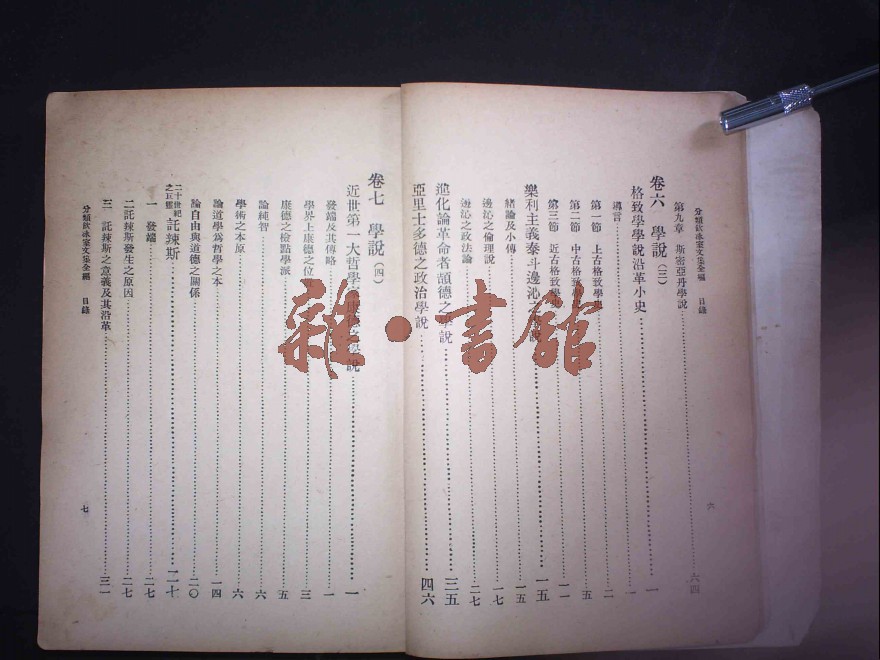 分類飲冰室文集全編 目錄
第九章 斯密亞丹學說 六四
卷六 學說(三)
格致學學說沿革小史 一
導言 一
第一節 上古格致學史 二
第二節 中古格致學史
第三節 近古格致學史 一一
樂利主義泰斗邊沁之學說 一五
緒論及小傳 一五
邊沁之倫理說 一七
邊沁之政法論 二七
進化論革命者頡德之學說 三五
亞里士多德之政治學說 四六
六
卷七 學說(四)
近世第一大哲學 說 一
發端及其傳略 一
學界上康德之位置 三
康德之檢點學派 五
論純智 六
學術之本原 六
論道學為哲學之本 一四
論自由與道德之關係 二〇
二十世紀之巨靈 託辣斯 二七
一 發端 二七
二 託辣斯發生之原因 二七
三 託辣斯之意義及其沿革 三一
分類飲冰室文集全編 目錄
七
雜·書館